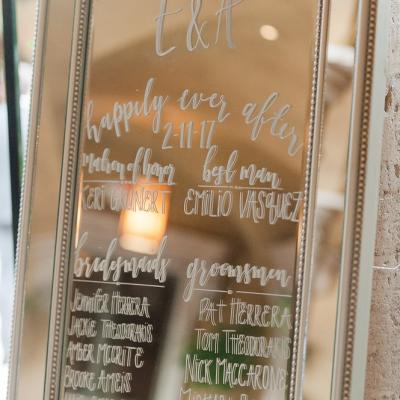 E & A
happily ever after
2-11-17
matron of honor best man
KERI GRUNERT EMILIO VASQUEZ
bridesmaids groomsmen
JENNIFER HERRERA PAT HERRERA
JACKIE THEODORAKIS TOM THEODORAKIS
AMBER MCCRITE NICK MACCARONE
BROOKE AMEIS